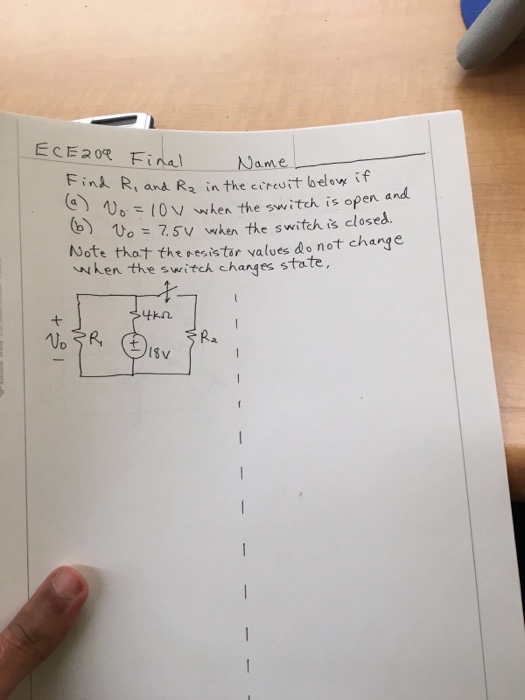 ECE209 Final Name
Find R1 and R2 in the circuit below if
(a) Vo = 10V when the switch is open and
(b) Vo = 7.5V when the switch is closed.
Note that the resistor values do not change
when the switch changes state.
+
Vo
−
R1
4kΩ
+
−
18V
R2